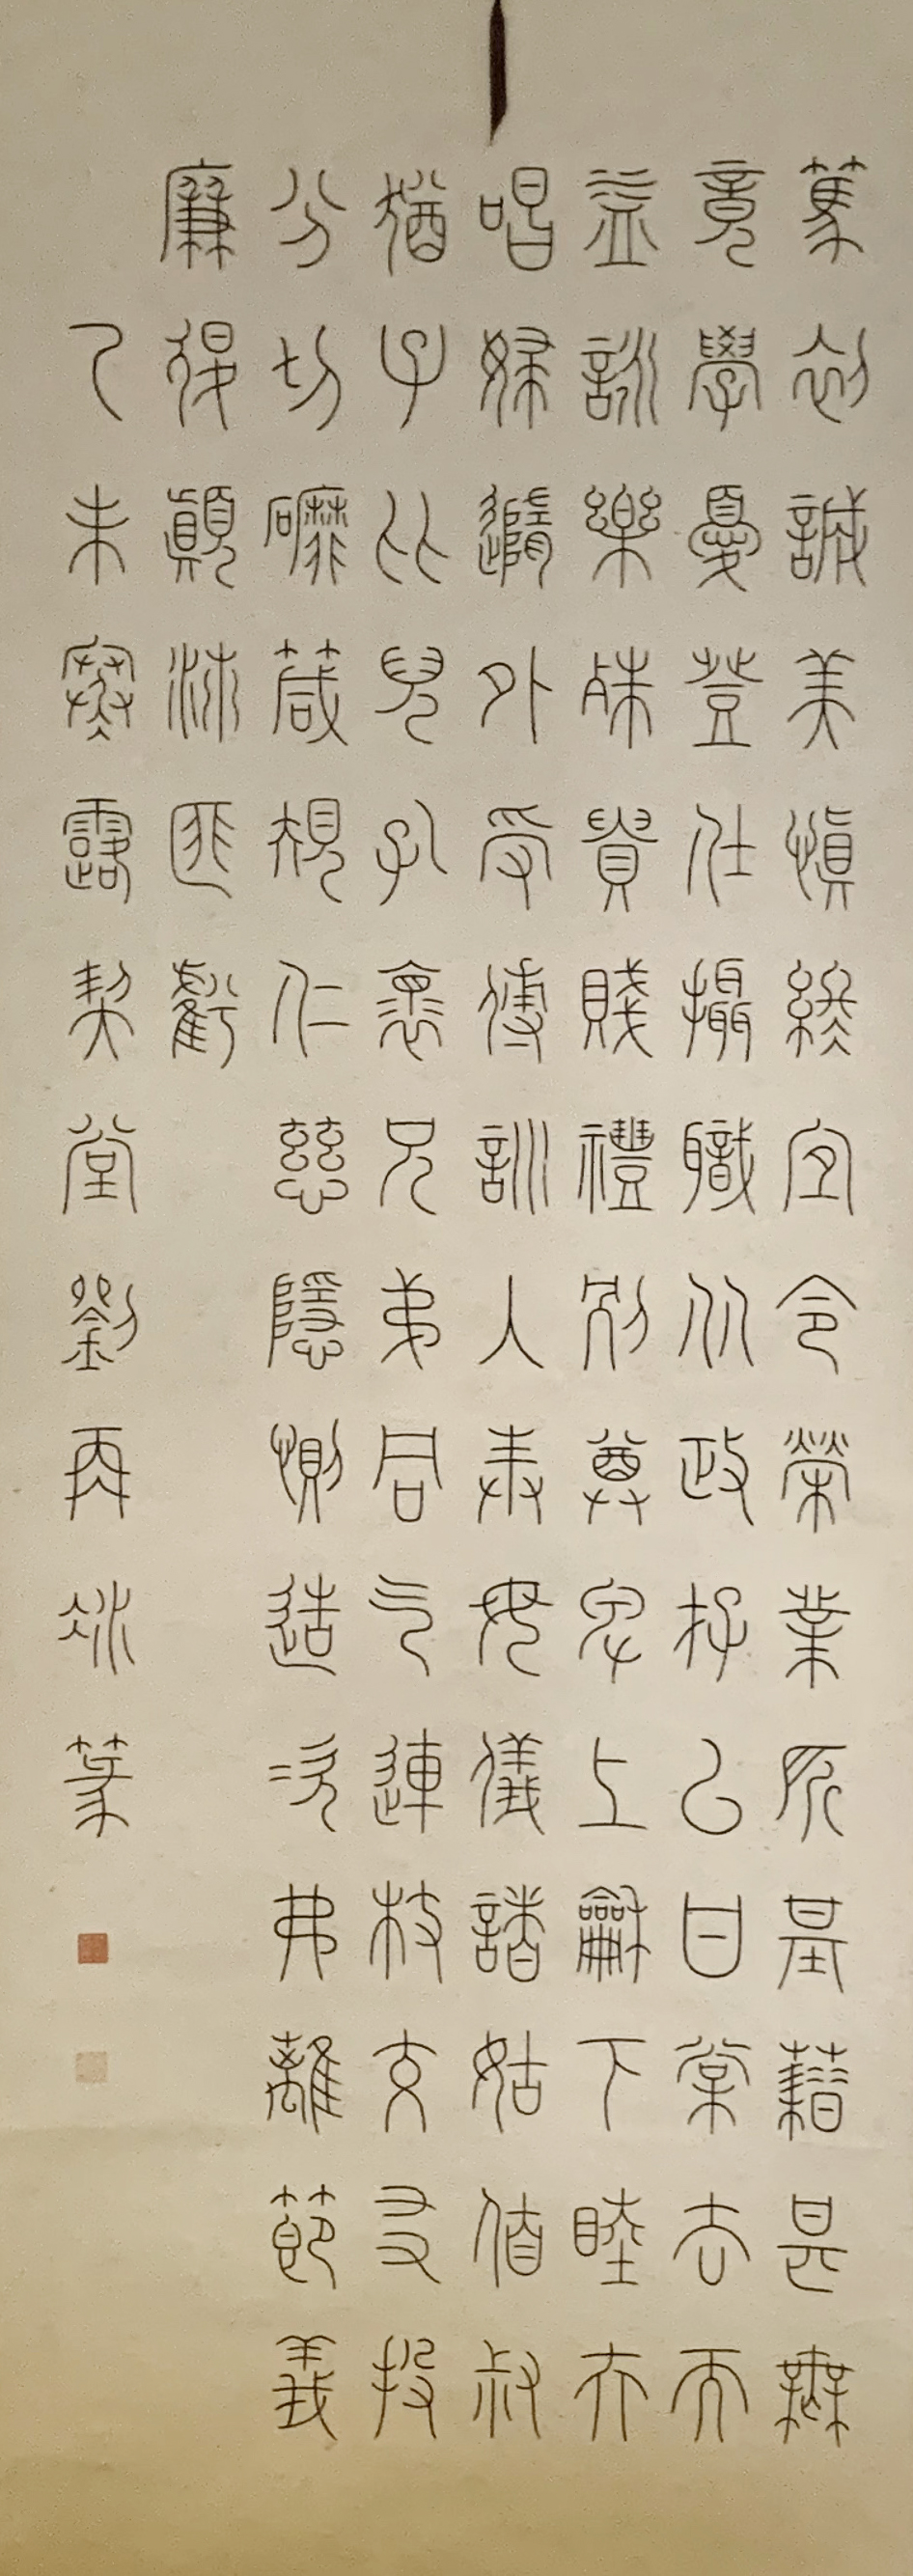 篤初誠美慎終宜令榮業所基藉甚無
竟學優登仕攝職從政存以甘棠去而
益詠樂殊貴賤禮別尊卑上龢下睦夫
唱婦隨外受傅訓入奉母儀諸姑伯叔
猶子比兒孔懷兄弟同气連枝交友投
分切磨箴規仁慈隱惻造次弗離節義
廉退顛沛匪虧
乙未寒露契堂劉再冰篆